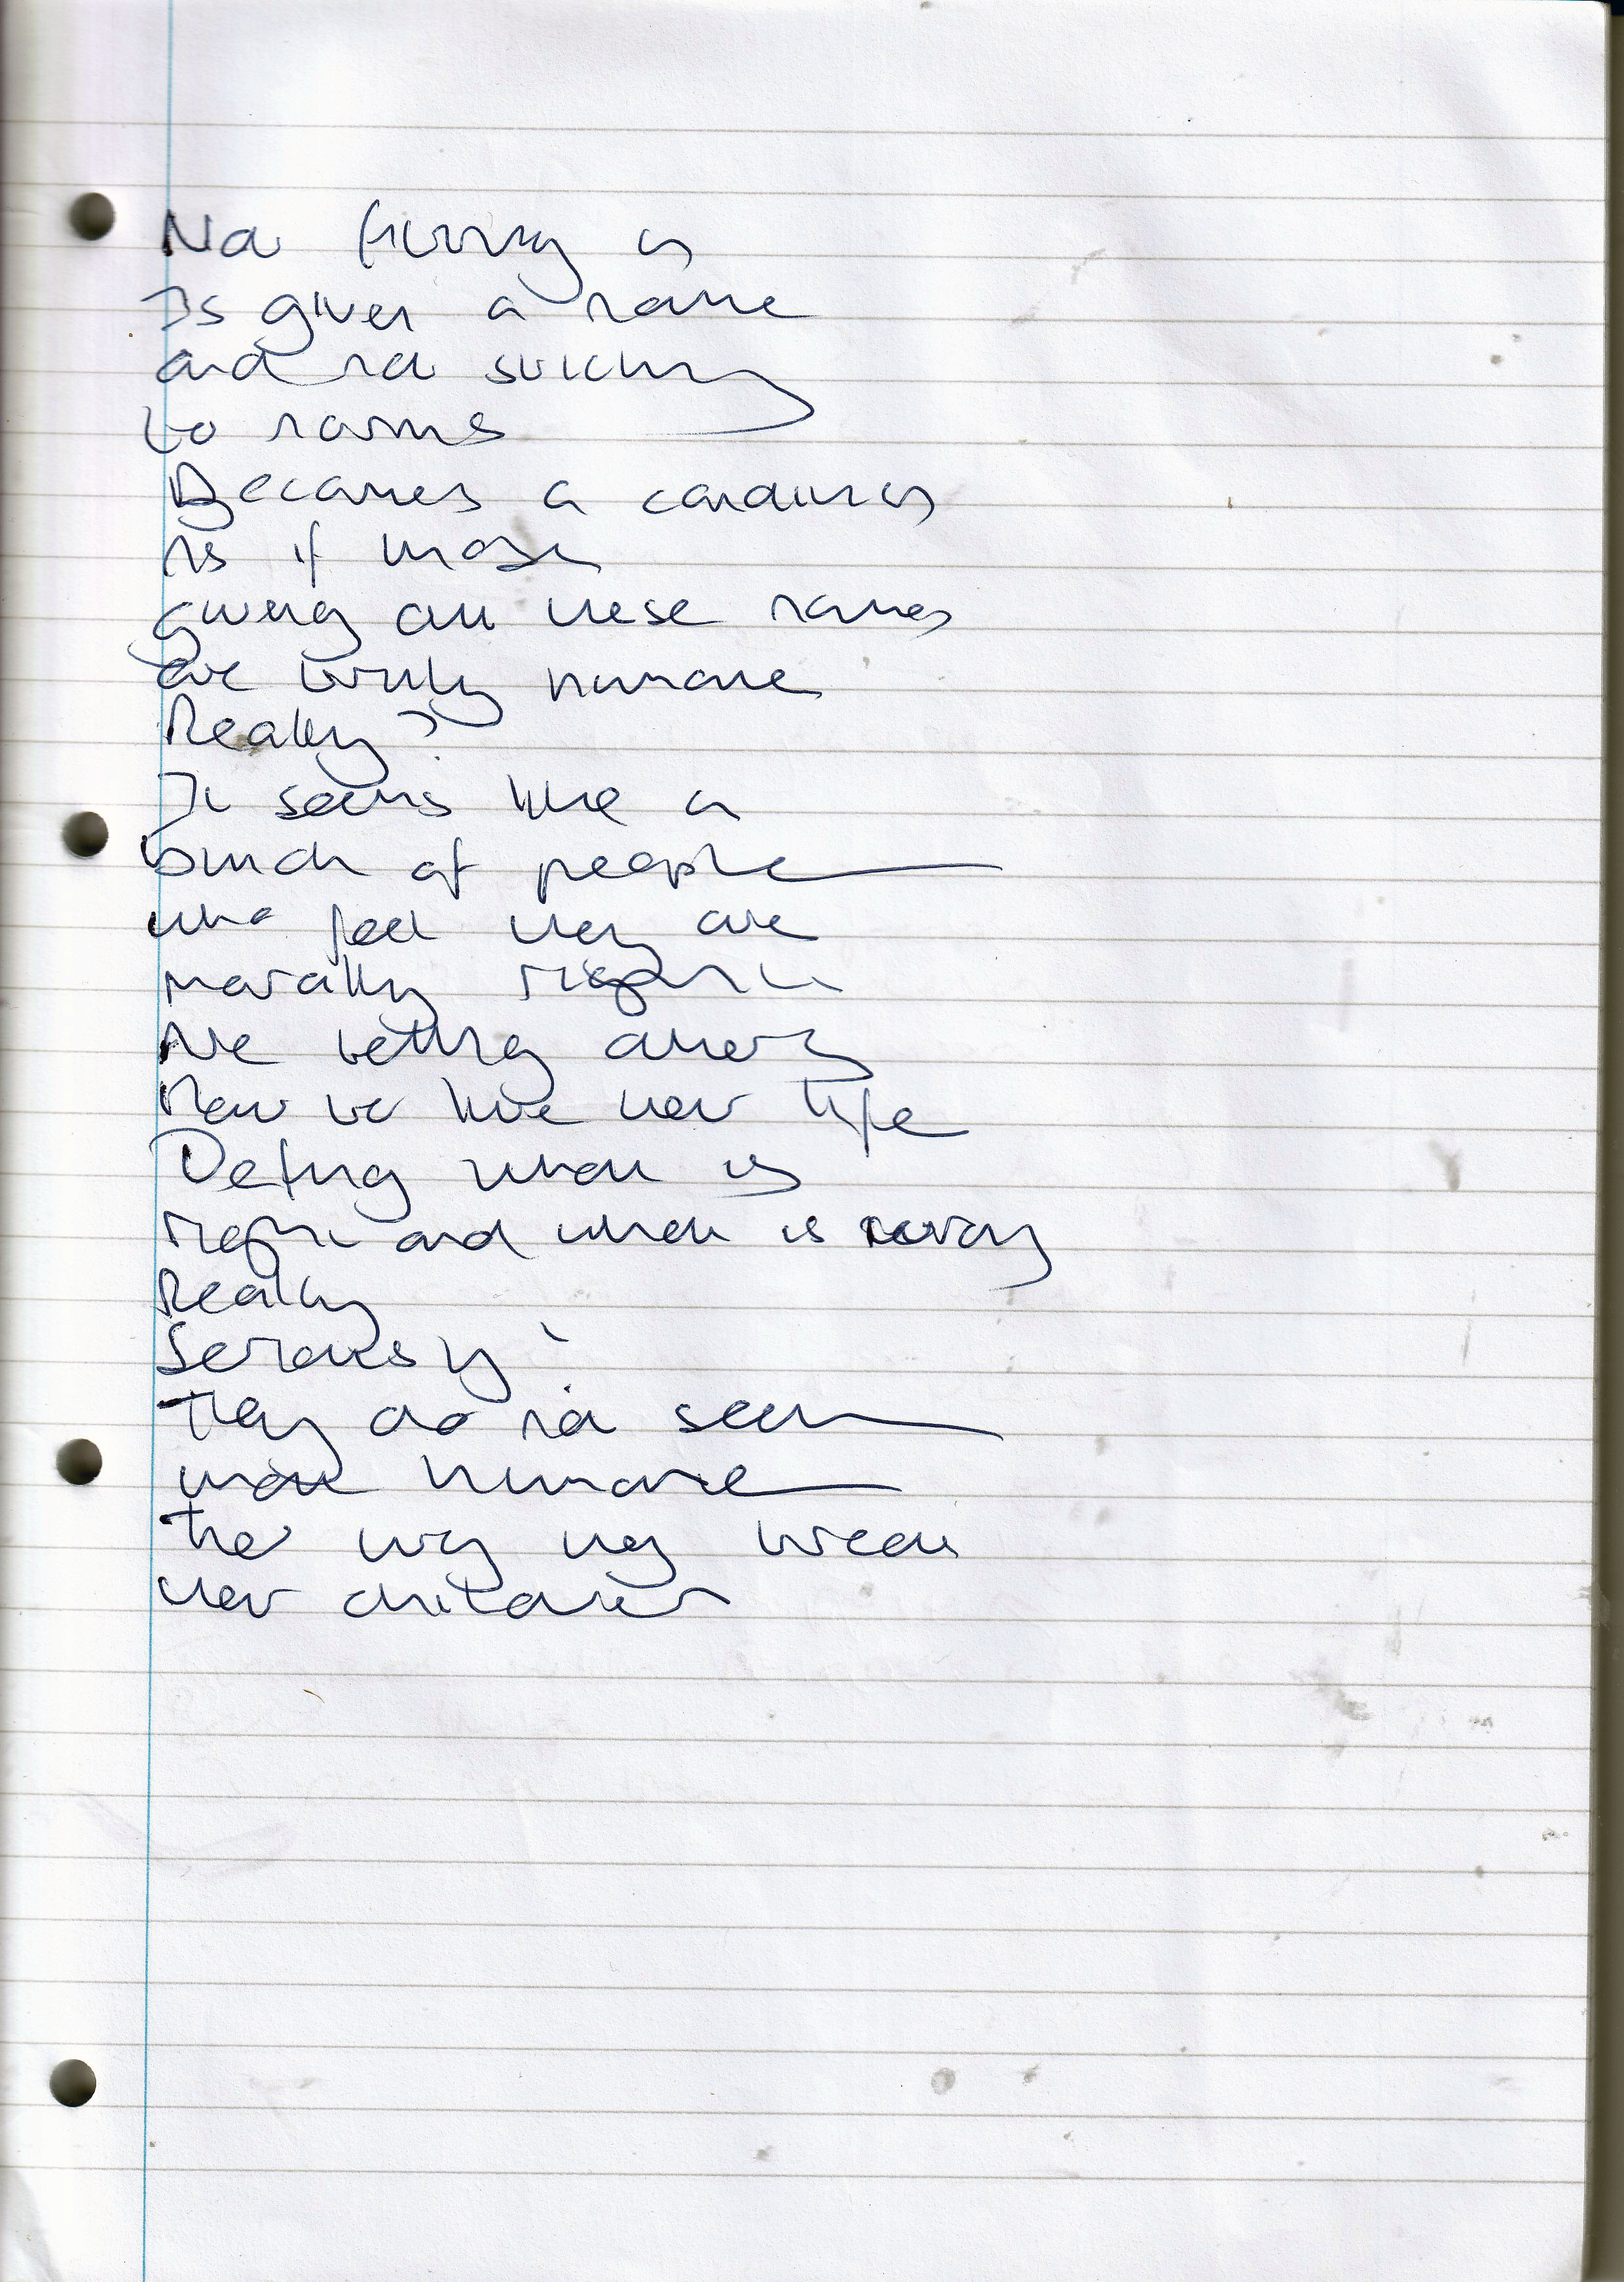 Not fitting in
Is given a name
and not sticking
to norms
Becomes a condition
As if those
giving all these names
are truly humane
Really?
It seems like a
bunch of people
who feel they are
morally right
Are telling others
How to live their life
Defining what is
right and what is wrong
Really
Seriously?
They do not seem
more humane
the way they treat
their children